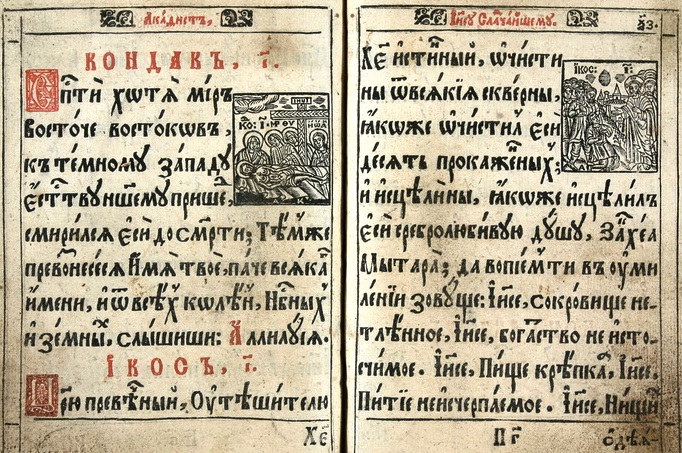 Акаѳистъ,
КОНДАКЪ, г҃і.
Сп҃сти хотѧ̀ міръ
Восто́че восто́ковъ,
къ те́мному за́паду
є҆стеству̀ на́шему прише́дъ,
смири́лсѧ є҆сѝ до сме́рти; Тѣ́мже
превознесе́сѧ и҆́мѧ твоѐ, па́че всѧ́каго
и҆́мени, и҆ ѿ всѣ́хъ колѣ́нъ, Нб҃ныхъ
и҆ земны́хъ, слы́шиши: А҆ллилꙋ́їа.
І҆КОСЪ, і҃.
Ц҃рю превѣ́чный, Оу҆тѣ́шителю
Хе҃
І҆и҃сꙋ Слача́йшемꙋ.
Хе҃ и҆́стинный, ѡ҆чи́сти
ны̀ ѿ всѧ́кїѧ скве́рны,
ꙗ҆́коже ѡ҆чи́стилъ є҆сѝ
де́сѧть прокаже́нныхъ;
и҆ и҆сцѣлѝ ны, ꙗ҆́коже и҆сцѣли́лъ
є҆сѝ сребролюби́вꙋю дꙋ́шꙋ, Закхе́а
Мытарѧ̀; да вопїе́мъ ти въ оу҆ми
ле́нїи зовꙋ́ще: І҆и҃се, сокро́вище не-
тлѣ́нное, І҆и҃се, бога́тство неисто-
счи́мое. І҆и҃се, Пи́ще крѣ́пкаѧ, І҆и҃се,
Питїѐ неисчерпа́емое. І҆и҃се, Ни́щиⷯ
І҆КОС: І҃.
П г҃
ѻ҆дѣѧ-